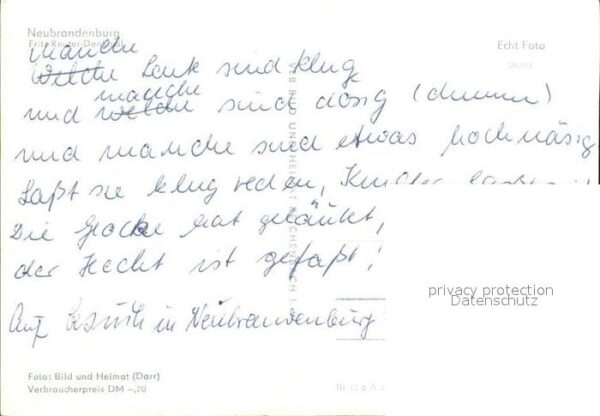 Neubrandenburg
Fritz-Reuter-Denkmal
Echt Foto
Manche
Welche Leute sind klug
manche
und welche sind dösig (dumm)
und manche sind etwas hochnäsig
Laßt sie klug reden, Kinder
Die Glocke hat geläutet,
der Hecht ist gefaßt!
Auf Besuch in Neubrandenburg
privacy protection
Datenschutz
Foto: Bild und Heimat (Darr)
Verbraucherpreis DM –,20